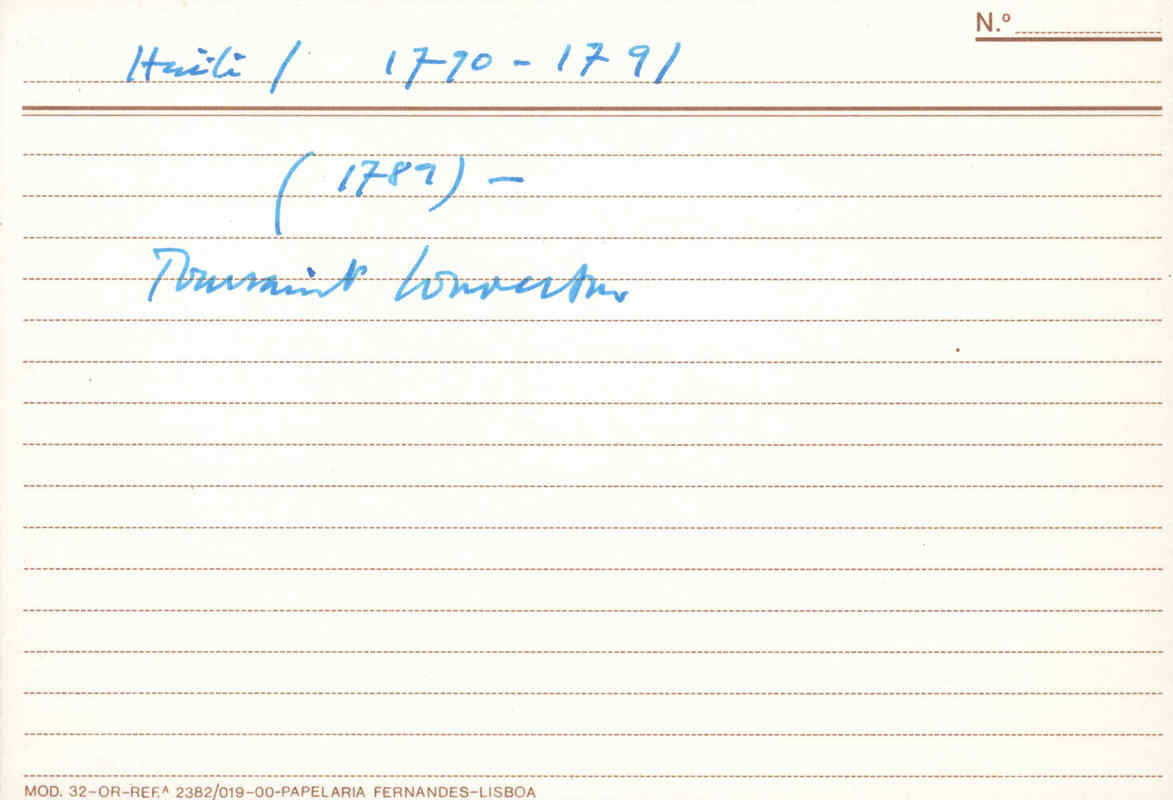 N.º
Haiti / 1790 - 1791
(1789) -
Toussaint Louverture
MOD. 32-OR-REF.ᴬ 2382/019-00-PAPELARIA FERNANDES-LISBOA